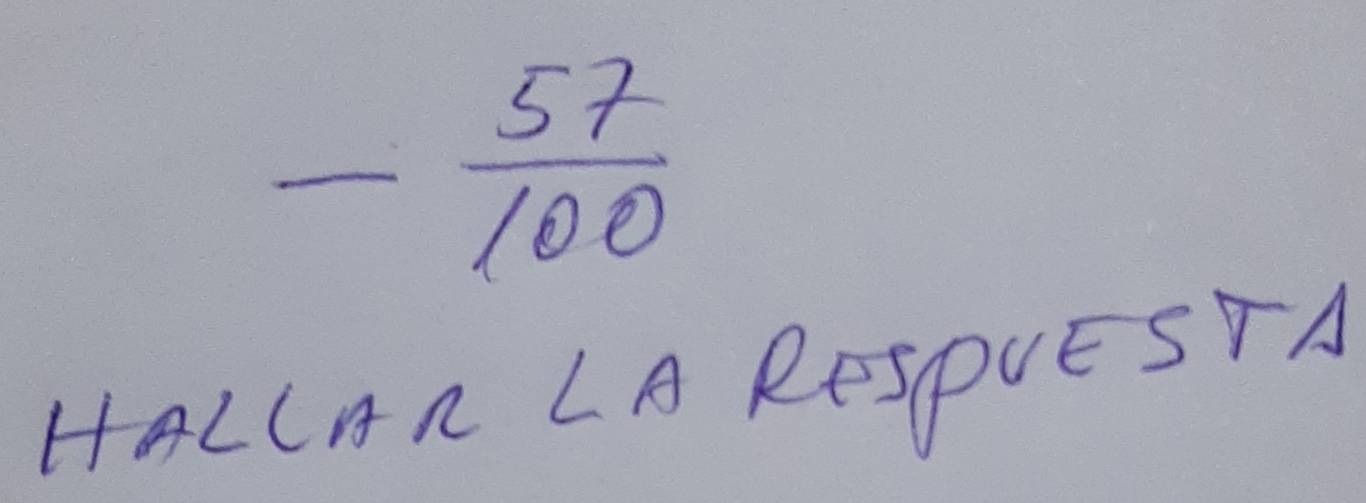 - 57/100
HALLAR LA RESPUESTA